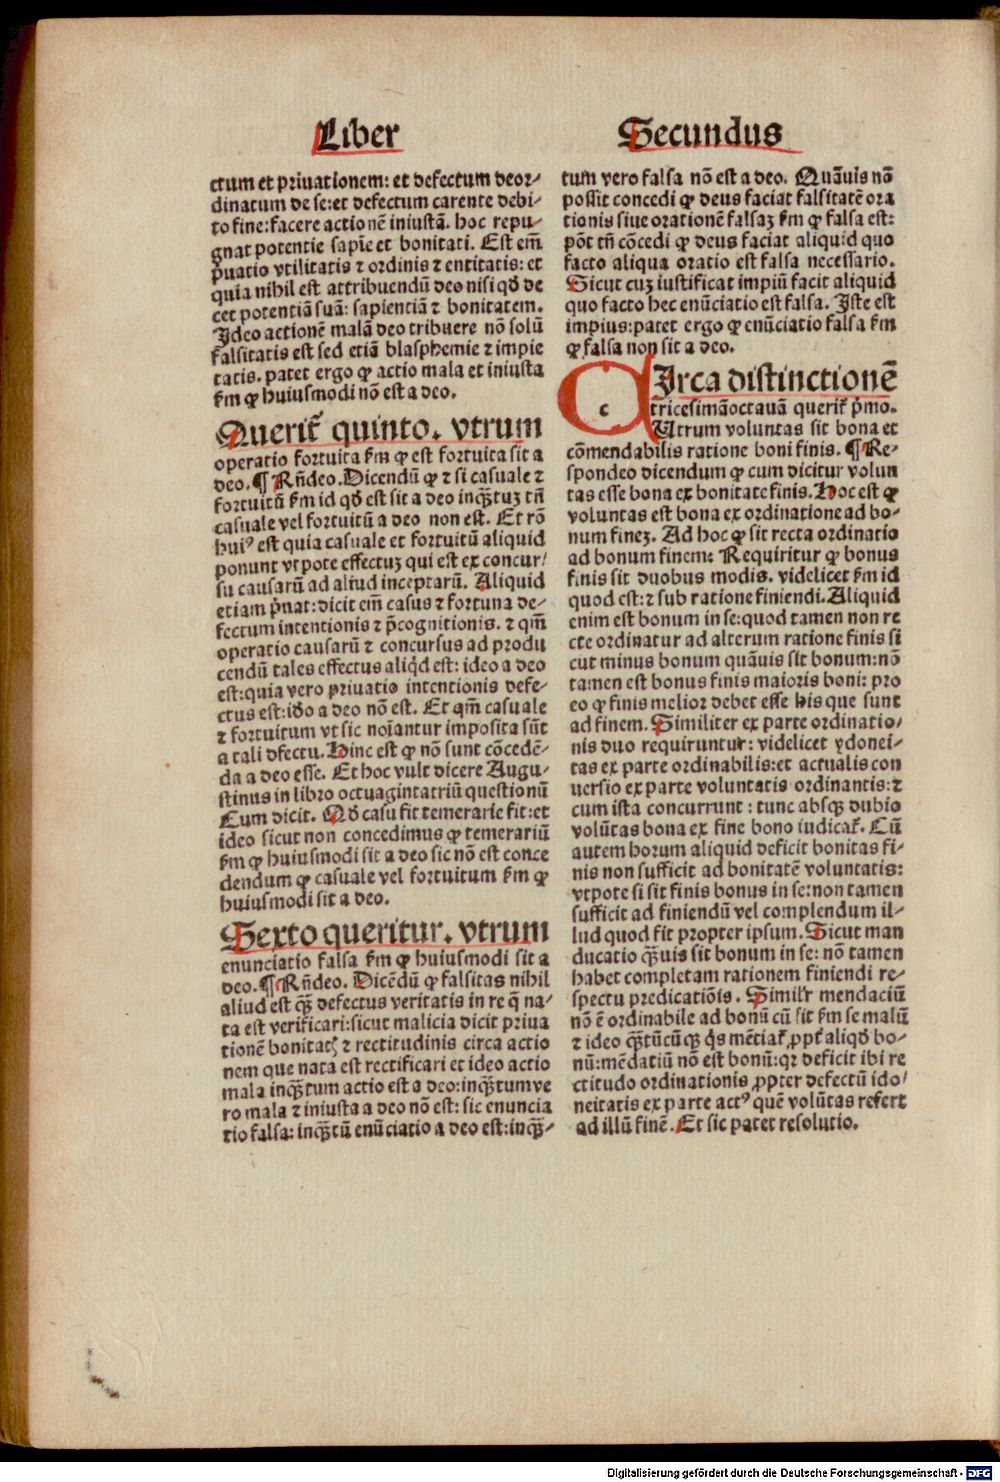 Liber
Secundus
ctum et priuationem: et defectum deor⸗
dinatum de se: et defectum carente debi⸗
to fine: facere actionē iniustā. hoc repu⸗
gnat potentie sapīe et bonitati. Est em̄
p̄uatio vtilitatis ⁊ ordinis ⁊ entitatis: et
quia nihil est attribuendū deo nisi qď de
cet potentiā suā: sapientiā ⁊ bonitatem.
Ideo actionē malā deo tribuere nō solū
falsitatis est sed etiā blasphemie ⁊ impie
tatis. patet ergo ꝙ actio mala et iniusta
ẜm ꝙ huiusmodi nō est a deo.
Querit̄ quinto. vtrum
operatio fortuita ẜm ꝙ est fortuita sit a
deo. ¶ Rn̄deo. Dicendū ꝙ ⁊ si casuale ⁊
fortuitū ẜm id qď est sit a deo inqȝ̄tuȝ tn̄
casuale vel fortuitū a deo non est. Et rō
huiꝰ est quia casuale et fortuitū aliquid
ponunt vtpote effectuȝ qui est ex concur⸗
su causarū ad aliud inceptarū. Aliquid
etiam p̄uat: dicit em̄ casus ⁊ fortuna de⸗
fectum intentionis ⁊ p̄cognitionis. ⁊ qm̄
operatio causarū ⁊ concursus ad produ
cendū tales effectus aliqd̓ est: ideo a deo
est: quia vero priuatio intentionis defe⸗
ctus est: iďo a deo nō est. Et qm̄ casuale
⁊ fortuitum vt sic noīantur imposita sūt
a tali dfectu. Hinc est ꝙ nō sunt cōcedē⸗
da a deo esse. Et hoc vult dicere Augu⸗
stinus in libro octuagintatriū questionū
Cum dicit. Qď casu fit temerarie fit: et
ideo sicut non concedimus ꝙ temerariū
ẜm ꝙ huiusmodi sit a deo sic nō est conce
dendum ꝙ casuale vel fortuitum ẜm ꝙ
huiusmodi sit a deo.
Sexto queritur. vtrum
enunciatio falsa ẜm ꝙ huiusmodi sit a
deo. ¶ Rn̄deo. Dicēdū ꝙ falsitas nihil
aliud est qȝ̄ defectus veritatis in re q̄ na⸗
ta est verificari: sicut malicia dicit priua
tionē bonitatꝭ ⁊ rectitudinis circa actio
nem que nata est rectificari et ideo actio
mala inqȝ̄tum actio est a deo: inqȝ̄tum ve
ro mala ⁊ iniusta a deo nō est: sic enuncia
tio falsa: inqȝ̄tū enūciatio a deo est: inqȝ̄⸗
tum vero falsa nō est a deo. Quāuis nō
possit concedi ꝙ deus faciat falsitatē ora
tionis siue orationē falsaȝ ẜm ꝙ falsa est:
pōt tn̄ cōcedi ꝙ deus faciat aliquid quo
facto aliqua oratio est falsa necessario.
Sicut cuȝ iustificat impiū facit aliquid
quo facto hec enūciatio est falsa. Iste est
impius: patet ergo ꝙ enūciatio falsa ẜm
ꝙ falsa non sit a deo.
CIrca distinctionē
tricesimāoctauā querit̄ p̄mo.
Utrum voluntas sit bona et
cōmendabilis ratione boni finis. ¶ Re⸗
spondeo dicendum ꝙ cum dicitur volun
tas esse bona ex bonitate finis. Hoc est ꝙ
voluntas est bona ex ordinatione ad bo⸗
num fineȝ. Ad hoc ꝙ sit recta ordinatio
ad bonum finem: Requiritur ꝙ bonus
finis sit duobus modis. videlicet ẜm id
quod est: ⁊ sub ratione finiendi. Aliquid
enim est bonum in se: quod tamen non re
cte ordinatur ad alterum ratione finis si
cut minus bonum quāuis sit bonum: nō
tamen est bonus finis maioris boni: pro
eo ꝙ finis melior debet esse his que sunt
ad finem. Similiter ex parte ordinatio⸗
nis duo requiruntur: videlicet ydonei⸗
tas ex parte ordinabilis: et actualis con
uersio ex parte voluntatis ordinantis: ⁊
cum ista concurrunt: tunc absqȝ dubio
volūtas bona ex fine bono iudicat̄. Cū
autem horum aliquid deficit bonitas fi⸗
nis non sufficit ad bonitatē voluntatis:
vtpote si sit finis bonus in se: non tamen
sufficit ad finiendū vel complendum il⸗
lud quod fit propter ipsum. Sicut man
ducatio qȝ̄uis sit bonum in se: nō tamen
habet completam rationem finiendi re⸗
spectu predicatiōis. Similr̄ mendaciū
nō ē ordinabile ad bonū cū sit ẜm se malū
⁊ ideo qȝ̄tūcūqȝ q̓s mētiat̄ ꝓpt̄ aliqď bo⸗
nū: mēdatiū nō est bonū: qꝛ deficit ibi re
ctitudo ordinationis ꝓpter defectū ido⸗
neitatis ex parte actꝰ quē volūtas refert
ad illū finē. Et sic patet resolutio.
Digitalisierung gefördert durch die Deutsche Forschungsgemeinschaft - DFG